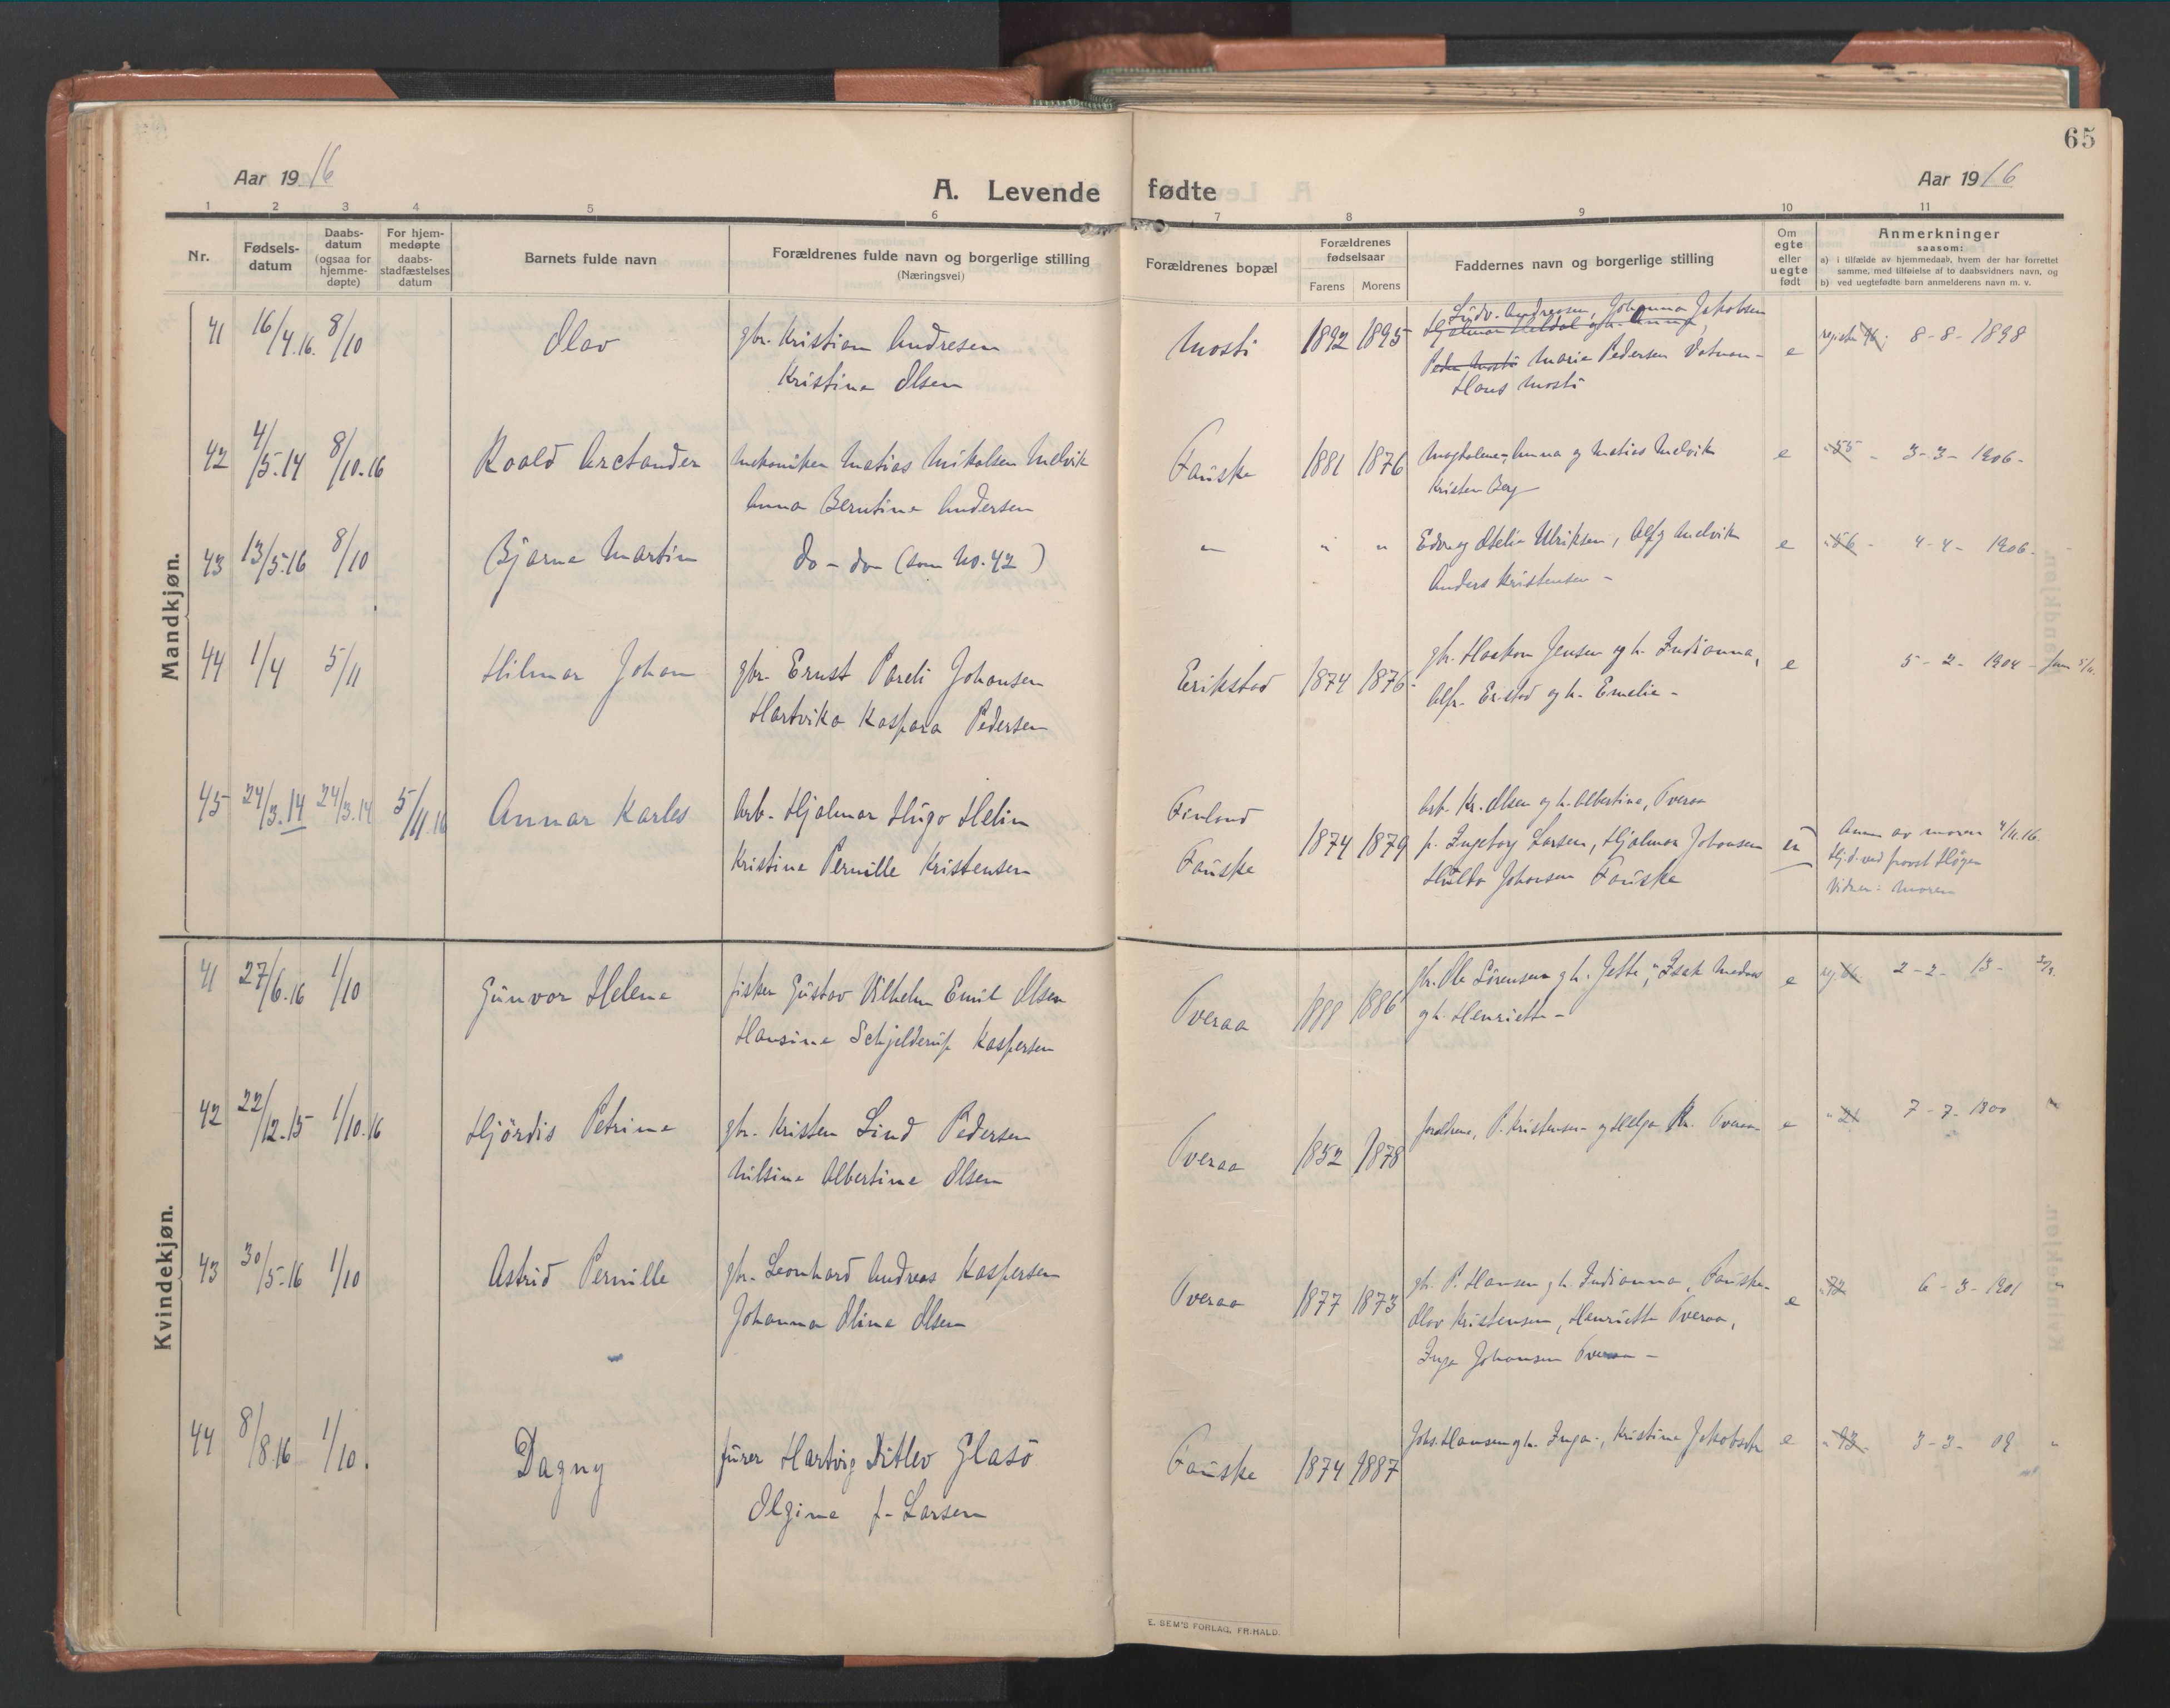 65
Aar 1916
A. Levende fødte
Aar 1916
1 2 3 4 5 6 7 8 9 10 11
Nr.
Fødsels-
datum
Daabs-
datum
(ogsaa for
hjemme-
døpte)
For hjem-
medøpte
daabs-
stadfæstelses
datum
Barnets fulde navn
Forældrenes fulde navn og borgerlige stilling
(Næringsvei)
Forældrenes bopæl
Forældrenes
fødselsaar
Farens Morens
Faddernes navn og borgerlige stilling
Om
egte
eller
uegte
født
Anmerkninger
saasom:
a) i tilfælde av hjemmedaab, hvem der har forrettet
samme, med tilføielse af to daabsvidners navn, og
b) ved uegtefødte barn anmelderens navn m. v.
Mandkjøn.
41 16/4.16. 8/10 Olav gbr. Kristian Andresen Mosti 1892 1895 Ludv. Andreasen, Johanna Jakobsen
Kristine Olsen
Hjalmar Heldal og h. Anna,
Peder Mosti Maria Pedersen
Hans Mosti
e 8-8-1898
42 4/5.14 8/10.16 Roald Arctander Mekaniker Matias Mikalsen Melvik Fauske 1881 1876 Magdalene, Anna og Matias Melvik e 55 - 3-3-1906-
Anna Berntine Andersen
Kristen Berg
43 13/5.16 8/10 Bjarne Martin do - do (som No. 42) " " " Edv. og Otelie Ulriksen, Alf Melvik e 56 - 4-4-1906.
Anders Kristensen -
44 1/4 5/11 Hilmar Johan gbr. Ernst Pareli Johansen Erikstad 1874 1876 gbr. Haakon Jensen og h. Indianna, e 5-2-1904
Hartvika Kaspara Pedersen
Alfr. Eristad og h. Emelie -
45 24/3.14 24/3.14 5/11.16 Annar Karles Arb. Hjalmar Hugo Helin Finland
Kristine Pernille Kristensen Fauske 1874 1879
Arb. Kr. Olsen og h. Albertine, Tveraa
p. Ingeborg Larsen, Hjalmar Johansen
Hulda Johansen Fauske
Anm av moren 4/11.16.
Hj.d. ved provst Høgen
Vidner: Moren
Kvindekjøn.
41 27/6.16 1/10 Gunvor Helene fisker Gustav Vilhelm Emil Olsen Tveraa 1888 1886 gbr. Ole Sørensen og h. Jette, Isak e 2-2-13-
Hansine Schjelderup Kaspersen
og h. Henriette -
42 22/12.15 1/10.16 Hjördis Petrine gbr. Kristen Lind Pedersen Tveraa 1852 1878 forældrene, P. Kristensen og Helga Kr. Tveraa e " 21 7-7-1900
Nilsine Albertine Olsen
43 30/5.16 1/10 Astrid Pernille gbr. Leonhard Andreas Kaspersen Tveraa 1877 1873 gbr. P. Hansen og h. Indianna, Fauske e " 72 6-3-1901 "
Johanna Oline Olsen
Olav Kristensen, Henriette Tveraa,
Inga Johansen Tveraa -
44 8/8.16 1/10. Dagny furer Hartvig Ditlev Glasö Fauske 1874 1887 Johs. Hansen og h. Inga, Kristine Jakobsen e " 93 3-3-09 "
Olgine f. Larsen
E. SEM'S FORLAG, FR.HALD.